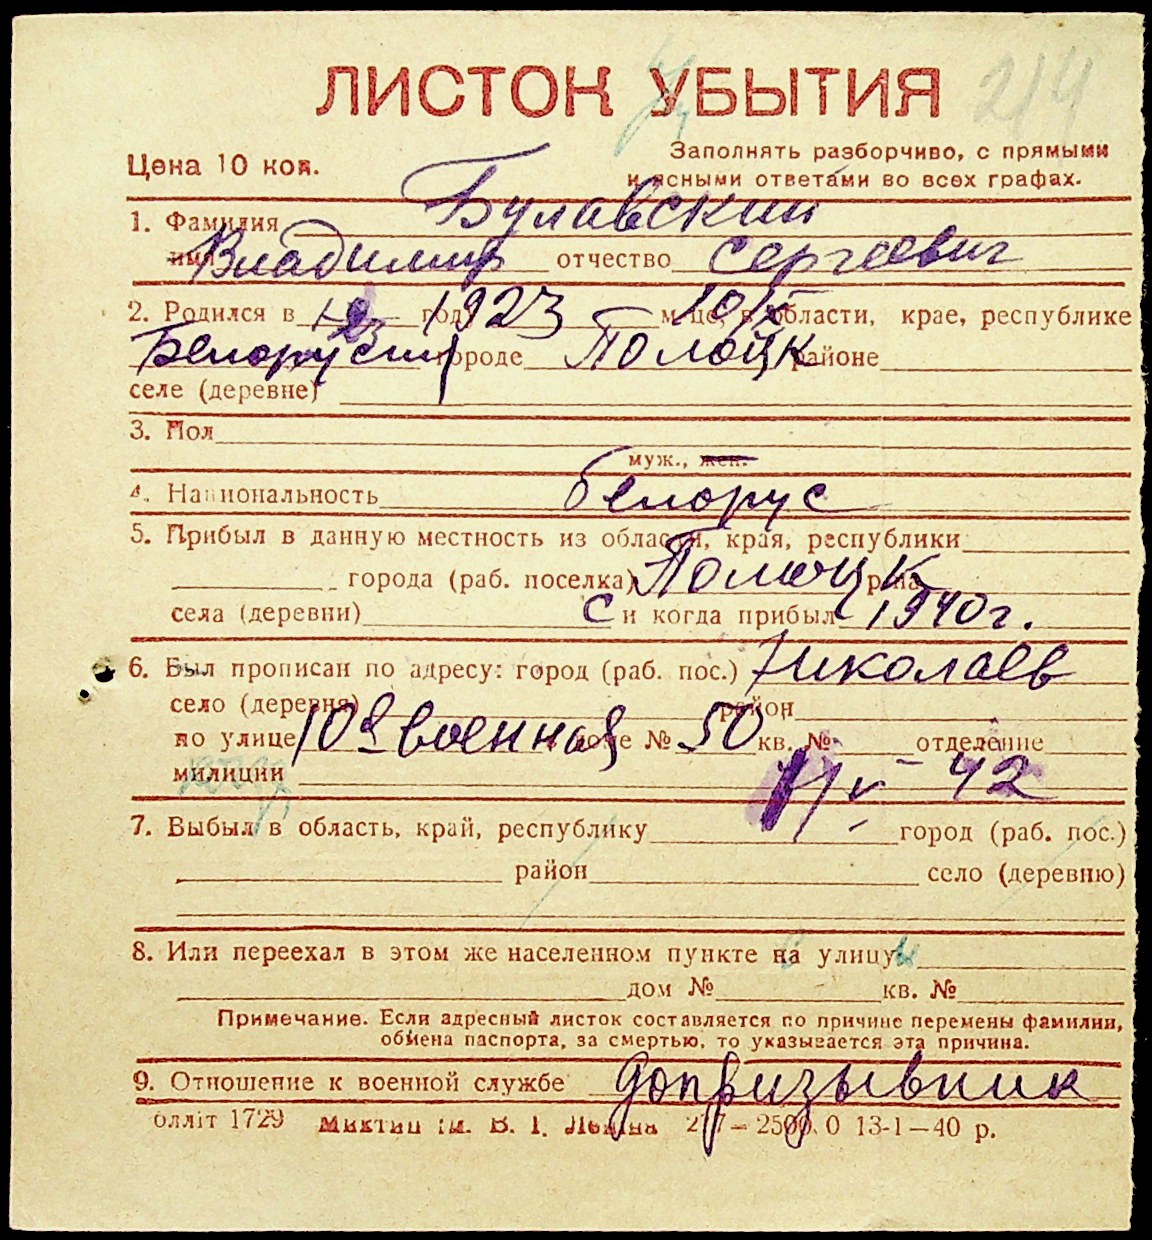 ЛИСТОК УБЫТИЯ 214
Цена 10 коп.
Заполнять разборчиво, с прямыми
и ясными ответами во всех графах.
1. Фамилия Булавский
имя Владимир отчество Сергеевич
2. Родился в 1923 году 1923 м-це, в области, крае, республике
Белоруссия городе Полоцк районе
селе (деревне)
3. Пол
муж., жен.
4. Национальность белорус
5. Прибыл в данную местность из области, края, республики
города (раб. поселка) Полоцк р-на
села (деревни) и когда прибыл с 1940 г.
6. Был прописан по адресу: город (раб. пос.) Николаев
село (деревня) район
по улице 10я военная доме № 50 кв. № отделение
милиции 42
7. Выбыл в область, край, республику город (раб. пос.)
район село (деревню)
8. Или переехал в этом же населенном пункте на улицу
дом № кв. №
Примечание. Если адресный листок составляется по причине перемены фамилии,
обмена паспорта, за смертью, то указывается эта причина.
9. Отношение к военной службе допризывник
олліт 1729 ім. В. І. Леніна 13-1—40 р.